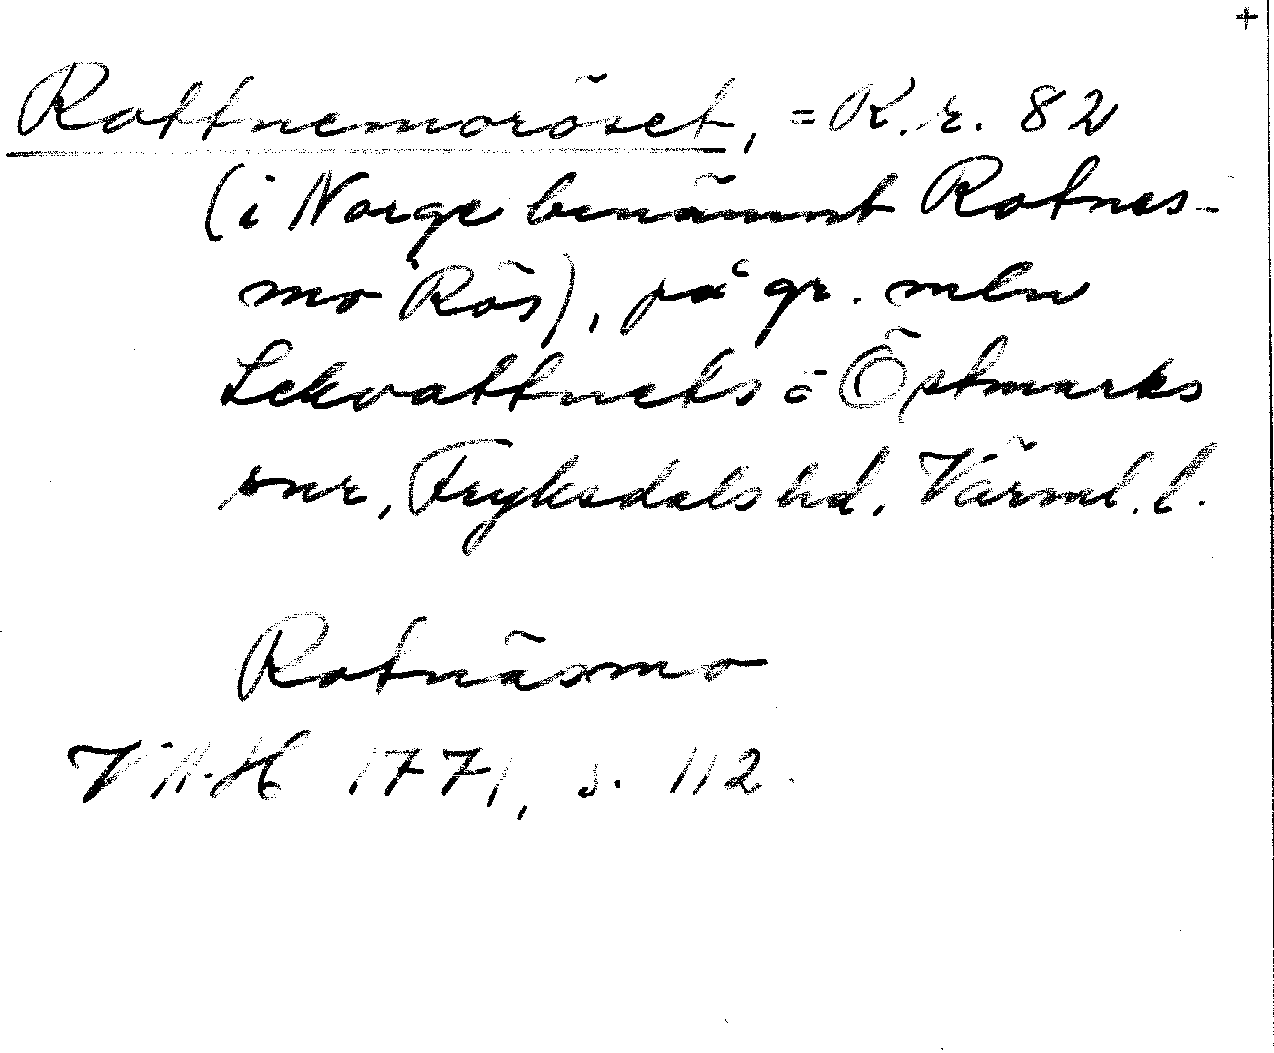 +
Rottnemoröset, = R.r. 82
(i Norge benämnt Rotnes-
mo Rös), på gr. mln
Lekvattnets o Östmarks
snr, Fryksdals hd. Värml. l.
Rotnäsmo
VAH 1771, s. 112.